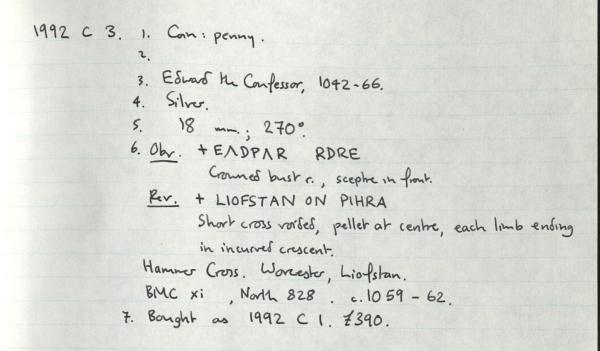 1992 C 3. 1. Coin: penny.
2.
3. Edward the Confessor, 1042-66.
4. Silver.
5. 18 mm; 270°.
6. Obv. +EADPAR RDRE
Crowned bust r., sceptre in front.
Rev. + LIOFSTAN ON PIHRA
Short cross voided, pellet at centre, each limb ending
in incurved crescent.
Hammer Cross. Worcester, Liofstan.
BMC xi , North 828. c.1059-62.
7. Bought as 1992 C 1. £390.